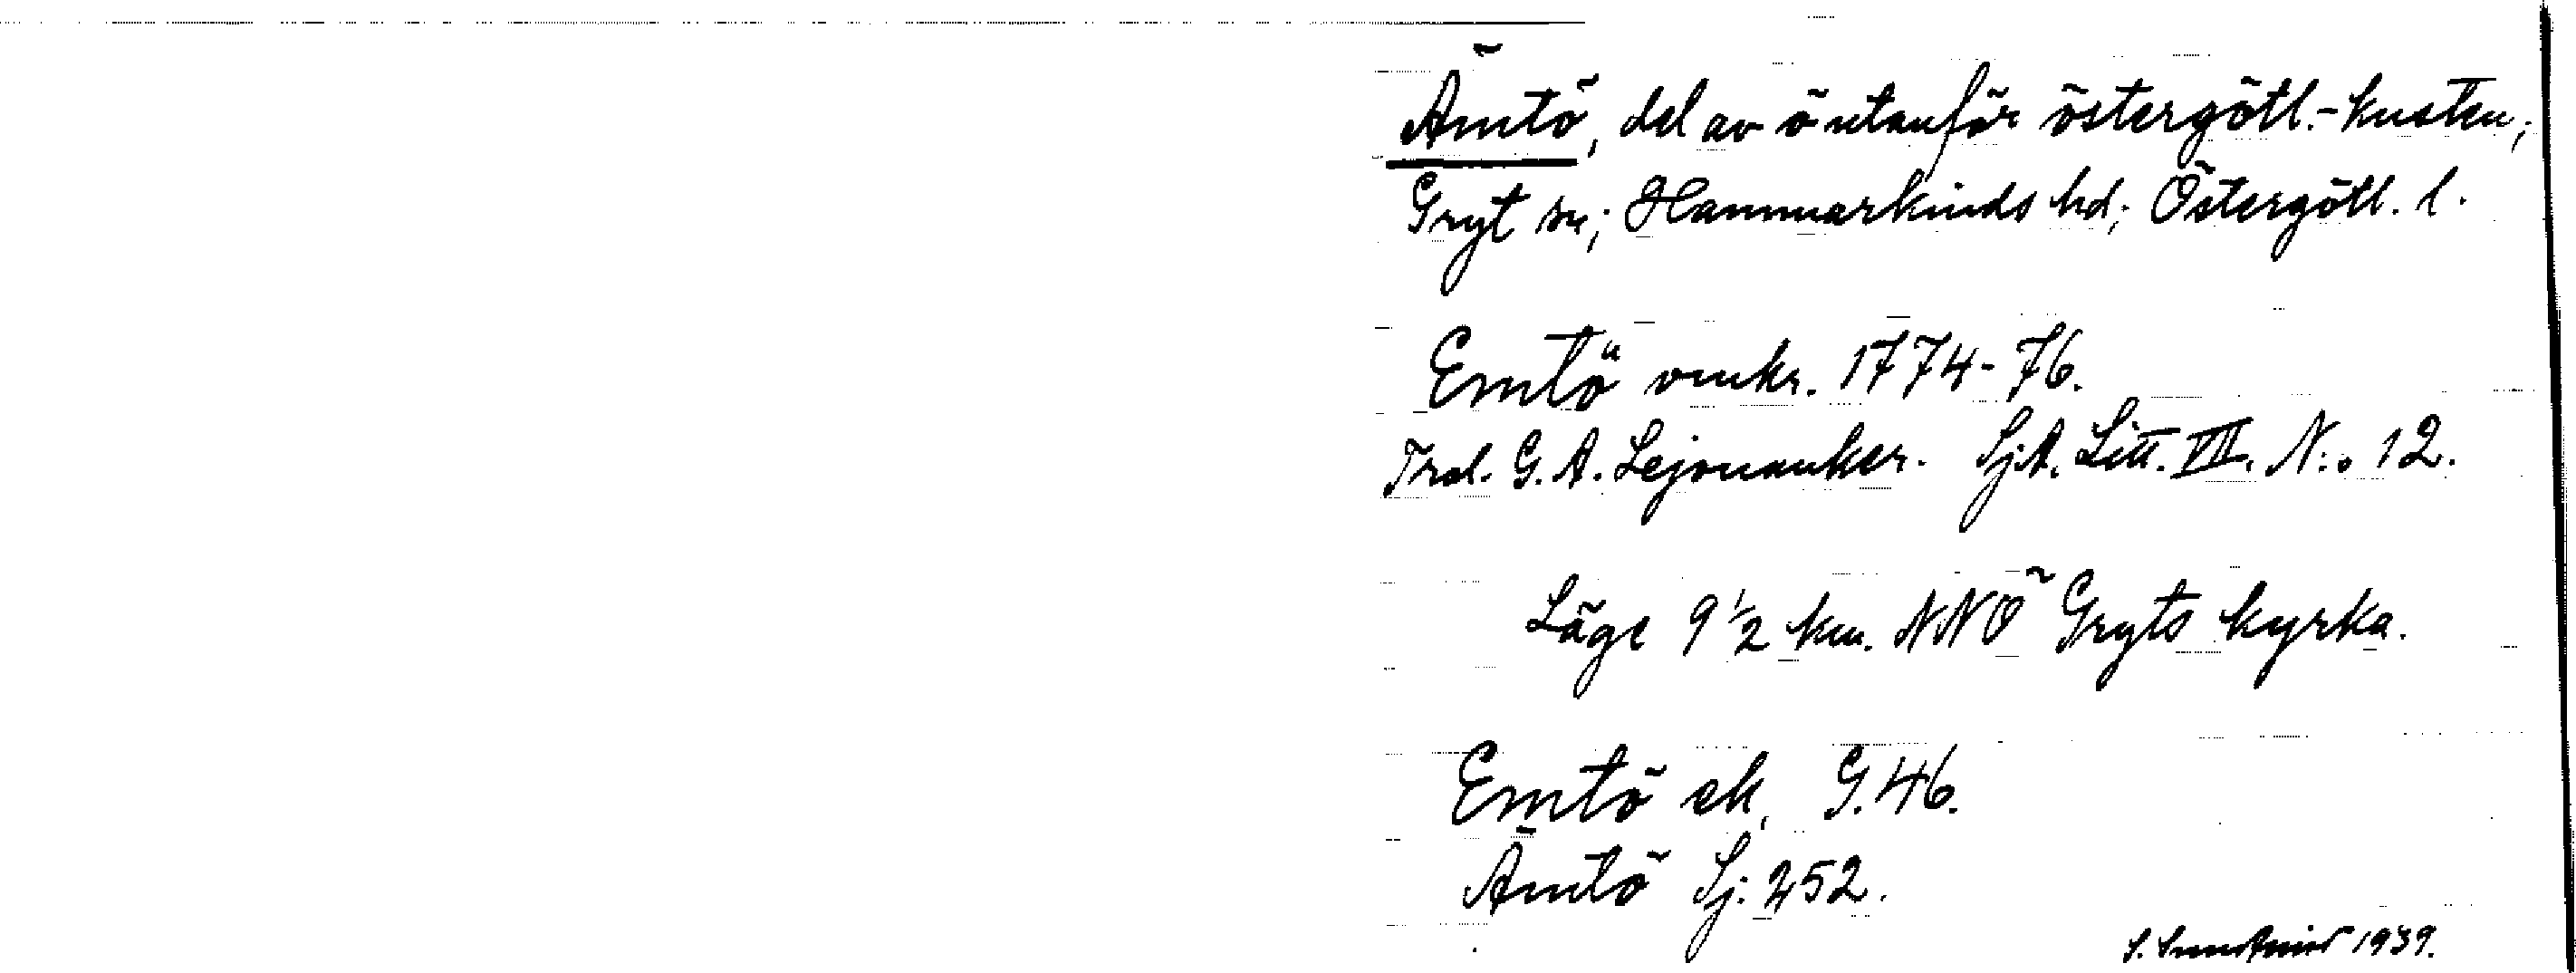 Ämtö, del av ö utanför östergötl.-kusten;
Gryt sn; Hammarkinds hd; Östergötl. l.
Emtö omkr. 1774-76.
Trol. G. A. Lejonanker. SjA. Litt. VII. N:o 12.
Läge 9 1/2 km. NNÖ Gryts kyrka.
Emtö ek, G.46.
Ämtö Sj. 252.
S. 1939.